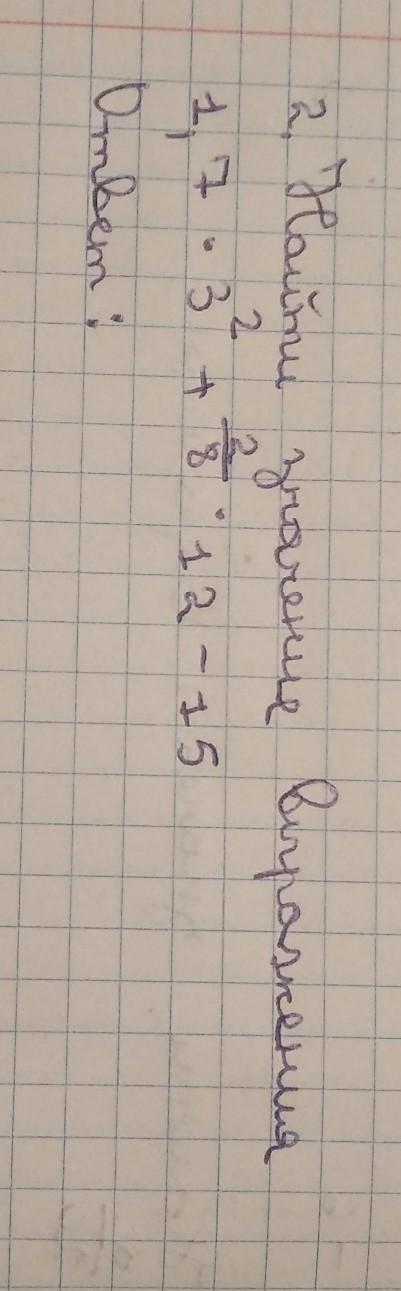 2. Найти значение выражения
1,7 · 3² + 2/8 · 12 - 15
Ответ: